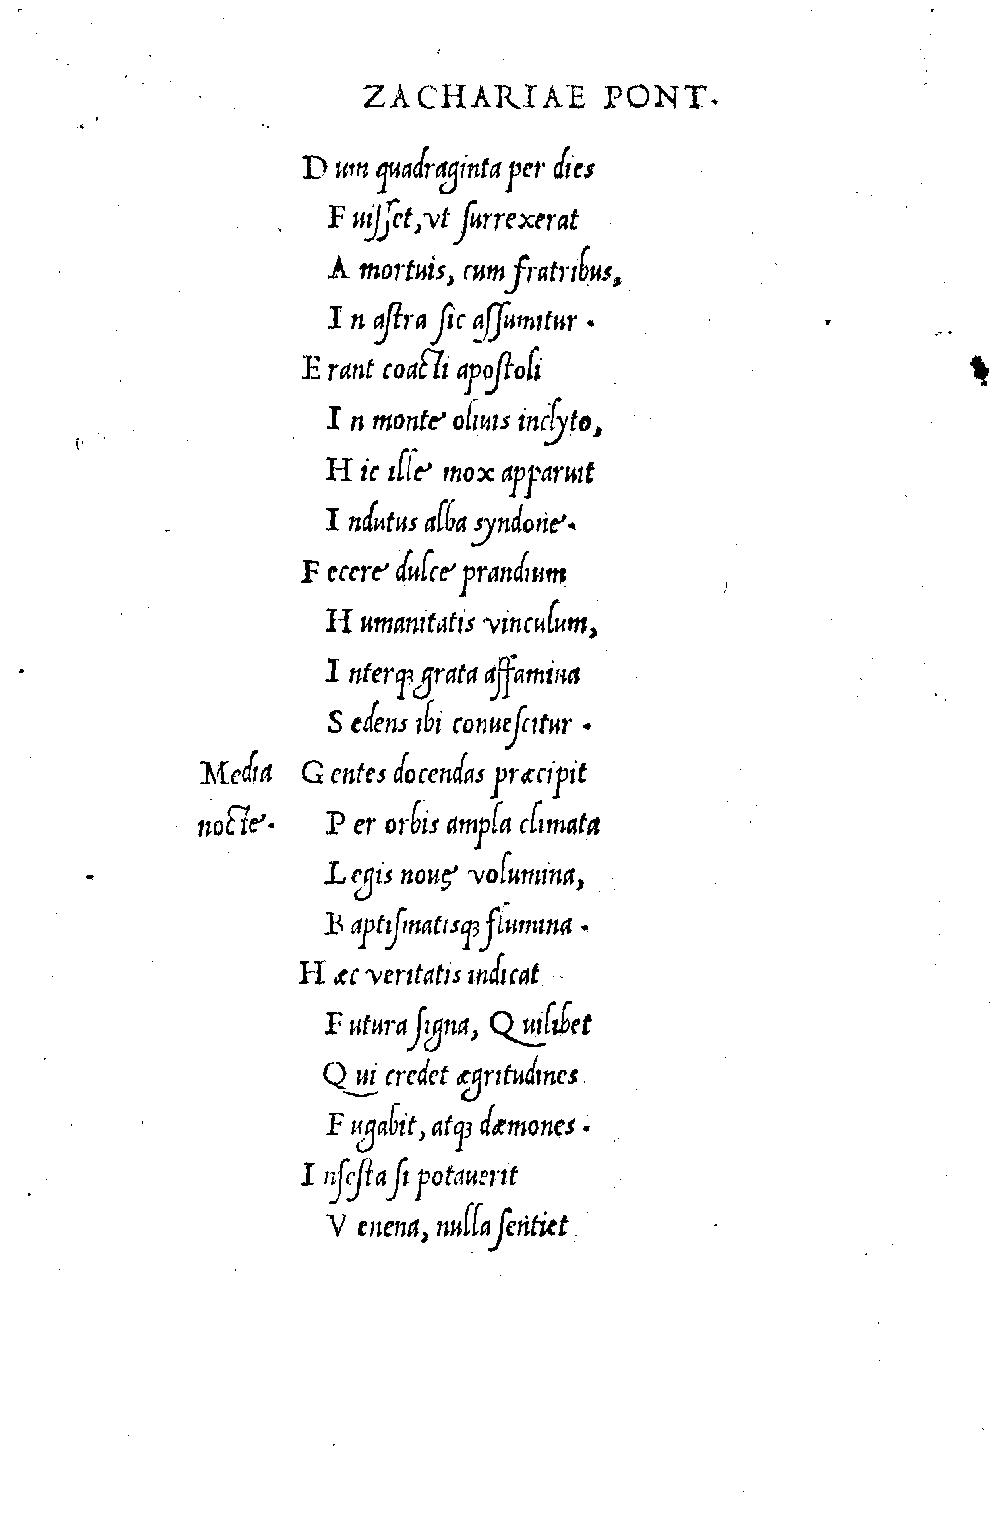 ZACHARIAE PONT.
D um quadraginta per dies
F uiſſet, vt ſurrexerat
A mortuis, cum fratribus,
I n aſtra ſic aſſumitur .
E rant coacti apoſtoli
I n monte oliuis inclyto,
H ic ille mox apparuit
I ndutus alba syndone.
F ecere dulce prandium
H umanitatis vinculum,
I nterqꝫ grata affamina
S edens ibi conueſcitur .
Media
nocte.
G entes docendas præcipit
P er orbis ampla climata
L egis nouę volumina,
B aptiſmatisqꝫ flumina .
H æc veritatis indicat
F utura ſigna, Quilibet
Qui credet ægritudines
F ugabit, atqꝫ dæmones .
I nfeſta ſi potauerit
V enena, nulla ſentiet